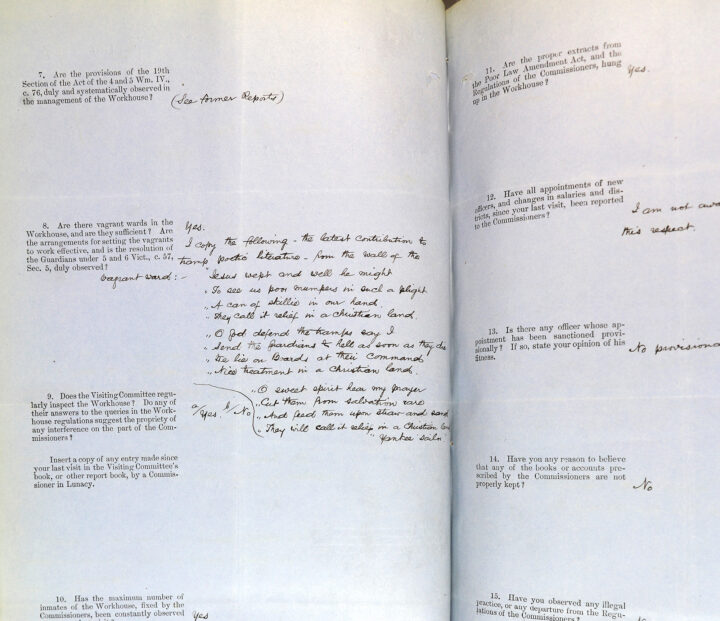 7. Are the provisions of the 19th
Section of the Act of the 4 and 5 Wm. IV.,
c. 76, duly and systematically observed in
the management of the Workhouse?
(See former Reports)
8. Are there vagrant wards in the
Workhouse, and are they sufficient? Are
the arrangements for setting the vagrants
to work effective, and is the resolution of
the Guardians under 5 and 6 Vict., c. 57,
Sec. 5, duly observed?
Yes.
I copy the following - the latest contribution to
tramp poetic literature - from the wall of the
vagrant ward:-
"Jesus wept and well he might
"To see us poor mumpers in such a plight
"A can of skillie in our hand.
"They call it relief in a Christian land.
"O God defend the tramps say I
"Send the Guardians to hell as soon as they die
"We lie on Boards at their command
"Nice treatment in a Christian land.
"O sweet spirit hear my prayer
"Cut them from salvation rare
"And feed them upon straw and sand
"They will call it relief in a Christian
"Yankee
9. Does the Visiting Committee regu-
larly inspect the Workhouse? Do any of
their answers to the queries in the Work-
house regulations suggest the propriety of
any interference on the part of the Com-
missioners?
a/Yes. b/No
Insert a copy of any entry made since
your last visit in the Visiting Committee's
book, or other report book, by a Commis-
sioner in Lunacy.
10. Has the maximum number of
inmates of the Workhouse, fixed by the
Commissioners, been constantly observed
Yes
11. Are the proper extracts from
the Poor Law Amendment Act, and the
Regulations of the Commissioners, hung
up in the Workhouse?
Yes.
12. Have all appointments of new
officers, and changes in salaries and dis-
tricts, since your last visit, been reported
to the Commissioners?
I am not
this respect.
13. Is there any officer whose ap-
pointment has been sanctioned provi-
sionally? If so, state your opinion of his
fitness.
No provisiona
14. Have you any reason to believe
that any of the books or accounts pre-
scribed by the Commissioners are not
properly kept?
No
15. Have you observed any illegal
practice, or any departure from the Regu-
lations of the Commissioners?